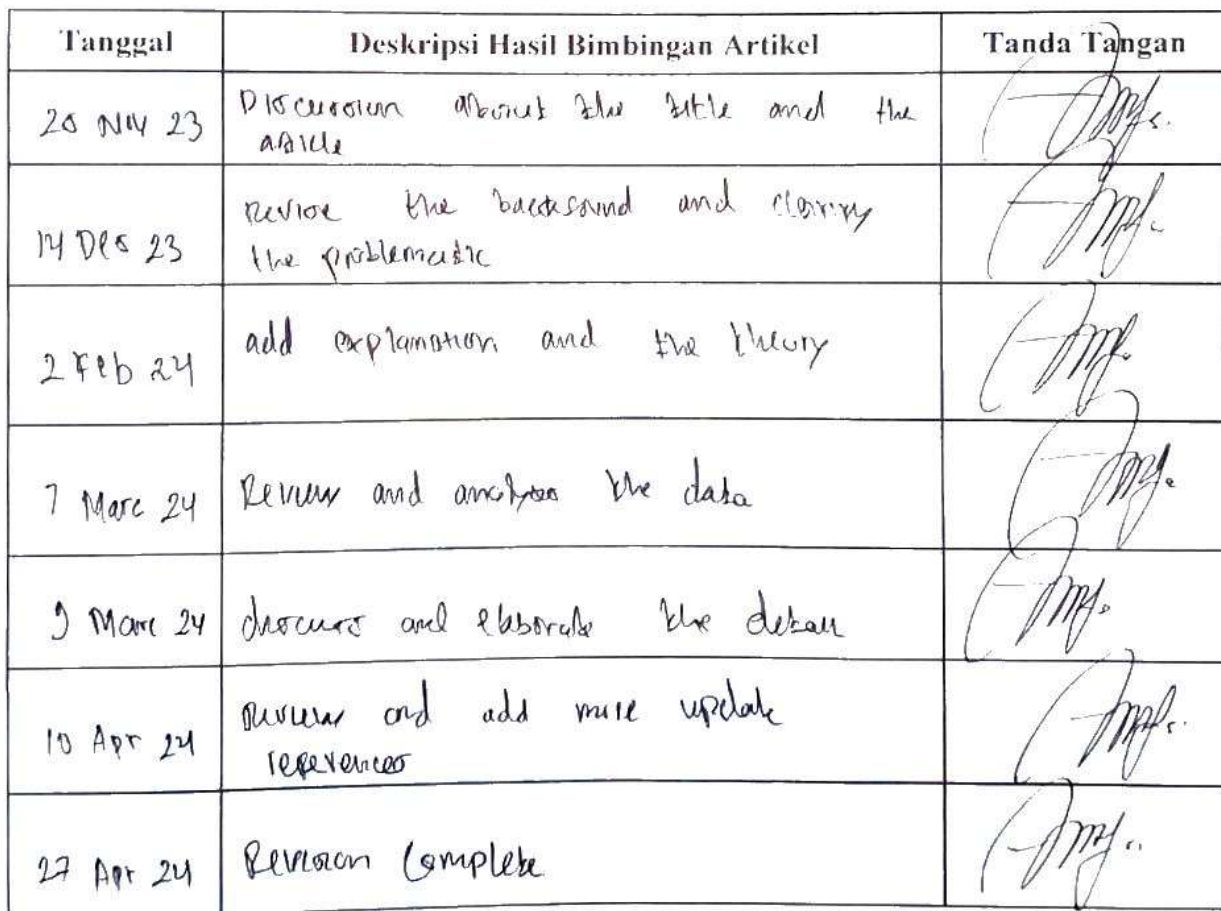 Tanggal Deskripsi Hasil Bimbingan Artikel Tanda Tangan
Nov 23 Discussion about the title and the
article
14 Des 23 revise the background and clarify
the problematic
2 Feb 24 add explanation and the theory
7 Marc 24 Review and analyses the data
9 Marc 24 discuss and elaborate the detail
10 Apr 24 review and add more update
references
27 Apr 24 Revision Complete